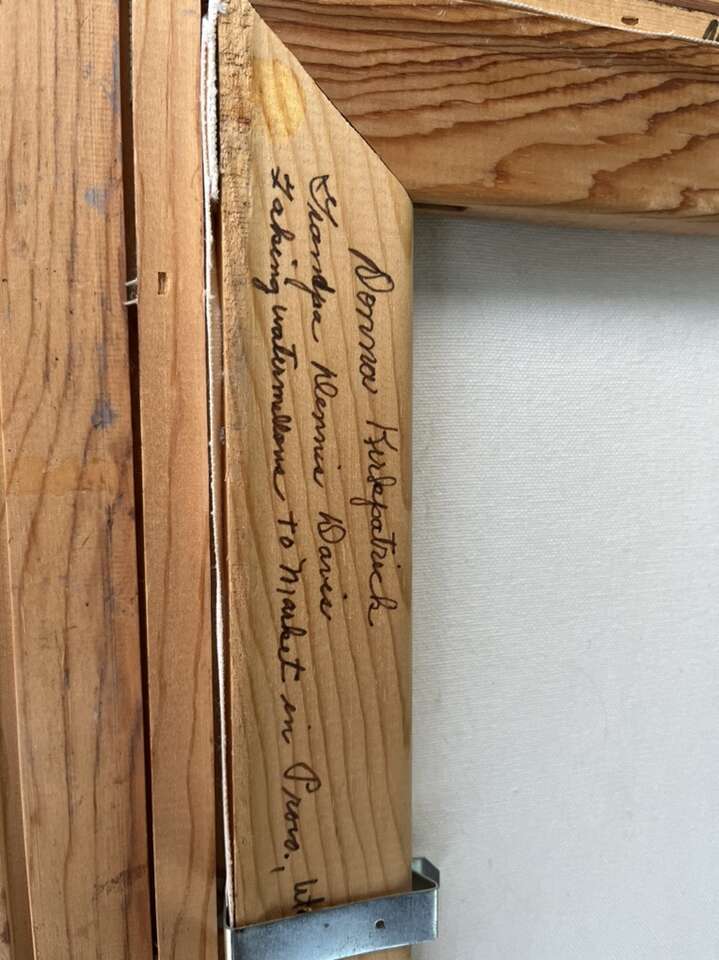 Donna Kirkpatrick
Grandpa Dennis Davis
Taking watermellons to Market in Provo.,